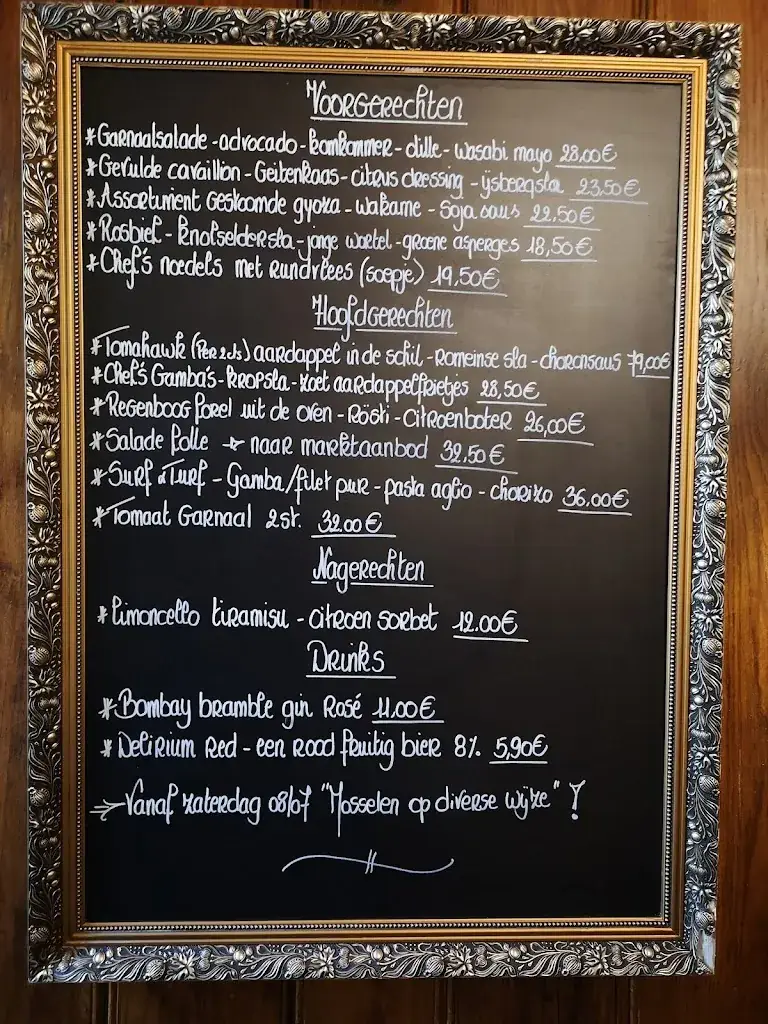 Voorgerechten
*Garnaalsalade - advocado - komkommer - dille - wasabi mayo 28,00€
*Gevulde cavaillion - Geitenkaas - citrus dressing - ijsbergsla 23,50€
*Assortiment gestoomde gyoza - wakame - Soja saus 22,50€
*Rosbief - knolseldersla - jonge wortel - groene asperges 18,50€
*Chef's noedels met rundvlees (soepje) 19,50€
Hoofdgerechten
*Tomahawk (Per 2 ds) aardappel in de schil - Romeinse sla - choronsaus 79,00€
*Chef's Gamba's - kropsla - zoet aardappelfrietjes 28,50€
*Regenboog forel uit de oven - Rösti - citroenboter 26,00€
*Salade folle → naar marktaanbod 32,50€
*Surf & Turf - Gamba/filet pur - pasta aglio - chorizo 36,00€
*Tomaat Garnaal 2st. 32.00€
Nagerechten
*Limoncello tiramisu - citroen sorbet 12.00€
Drinks
*Bombay bramble gin Rosé 11.00€
*Delirium Red - een rood fruitig bier 8% 5,90€
⇒ Vanaf zaterdag 08/07 "Mosselen op diverse wijze" !